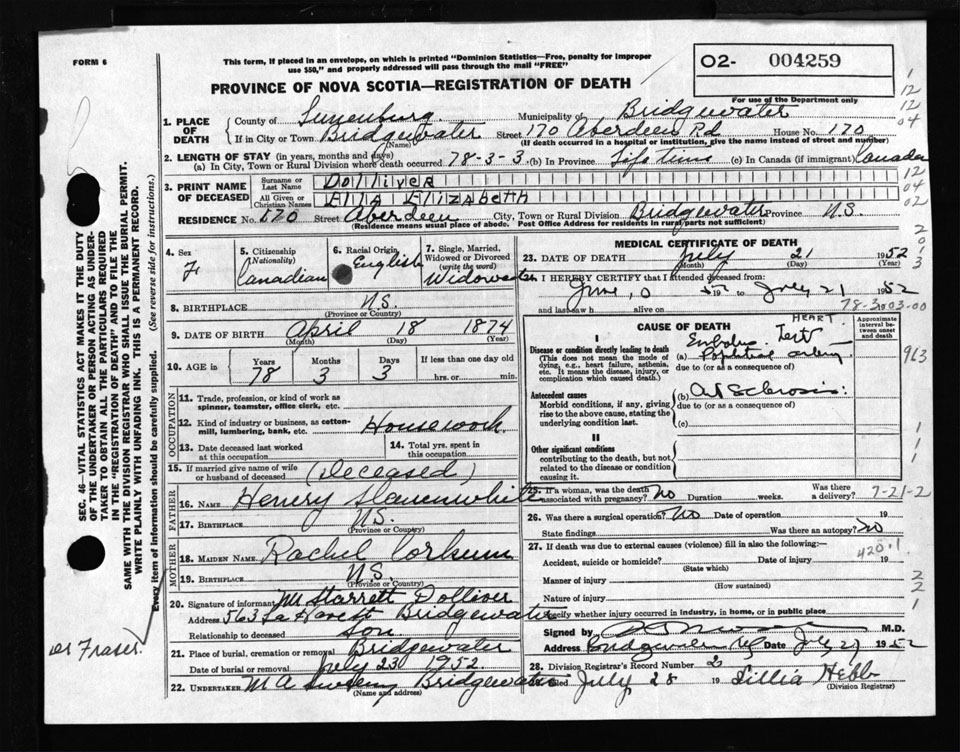 FORM 6
This form, if placed in an envelope, on which is printed "Dominion Statistics—Free, penalty for improper
use $50," and properly addressed will pass through the mail "FREE"
O2- 004259
For use of the Department only
PROVINCE OF NOVA SCOTIA—REGISTRATION OF DEATH
1. PLACE OF DEATH
County of Lunenburg Municipality of Bridgewater
If in City or Town Bridgewater Street 170 Aberdeen Rd House No. 170
(Name) (If death occurred in a hospital or institution, give the name instead of street and number)
2. LENGTH OF STAY (in years, months and days)
(a) In City, Town or Rural Division where death occurred 78-3-3 (b) In Province Life time (c) In Canada (if immigrant) Canada
3. PRINT NAME OF DECEASED
Surname or Last Name Dolliver
All Given or Christian Names Ella Elizabeth
RESIDENCE No. 170 Street Aberdeen City, Town or Rural Division Bridgewater Province N.S.
(Residence means usual place of abode. Post Office Address for residents in rural parts not sufficient)
4. Sex F
5. Citizenship (Nationality) Canadian
6. Racial Origin English
7. Single, Married, Widowed or Divorced (write the word) Widowed
8. BIRTHPLACE N.S.
(Province or Country)
9. DATE OF BIRTH April 18 1874
(Month) (Day) (Year)
10. AGE in Years 78 Months 3 Days 3 If less than one day old
hrs. or min.
OCCUPATION
11. Trade, profession, or kind of work as
spinner, teamster, office clerk, etc.
12. Kind of industry or business, as cotton-
mill, lumbering, bank, etc. Housework.
13. Date deceased last worked
at this occupation
14. Total yrs. spent in
this occupation
15. If married give name of wife
or husband of deceased (Deceased)
FATHER
16. NAME Henry Slauenwhite
17. BIRTHPLACE N.S.
(Province or Country)
MOTHER
18. MAIDEN NAME Rachel Corkum
19. BIRTHPLACE N.S.
(Province or Country)
20. Signature of informant M Starrett Dolliver
Address 563 La Have St Bridgewater
Relationship to deceased son
21. Place of burial, cremation or removal Bridgewater
Date of burial or removal July 23 1952.
22. UNDERTAKER M A Bridgewater
(Name and address)
MEDICAL CERTIFICATE OF DEATH
23. DATE OF DEATH July 21 1952
(Month) (Day) (Year)
24. I HEREBY CERTIFY that I attended deceased from:
June 10 52 to July 21 1952
and last saw h alive on
78-3-03-00
CAUSE OF DEATH
Approximate interval between onset and death
I
Disease or condition directly leading to death
(This does not mean the mode of
dying, e.g., heart failure, asthenia,
etc. It means the disease, injury, or
complication which caused death.)
HEART
Embolus
(a) Popliteal artery
due to (or as a consequence of)
Antecedent causes
Morbid conditions, if any, giving
rise to the above cause, stating the
underlying condition last.
(b) Art Sclerosis:
due to (or as a consequence of)
(c)
II
Other significant conditions
contributing to the death, but not
related to the disease or condition
causing it.
25. If a woman, was the death
associated with pregnancy? No Duration weeks. Was there
a delivery? 7-21-2
26. Was there a surgical operation? No Date of operation 19
State findings Was there an autopsy? No
27. If death was due to external causes (violence) fill in also the following:—
Accident, suicide or homicide? Date of injury 19
(State which)
420.1
Manner of injury
(How sustained)
Nature of injury
Specify whether injury occurred in industry, in home, or in public place
Signed by M.D.
Address Bridgewater NS Date July 1952
28. Division Registrar's Record Number
Filed July 28 19 Lillia Hebb
(Division Registrar)
SEC. 46—VITAL STATISTICS ACT MAKES IT THE DUTY
OF THE UNDERTAKER OR PERSON ACTING AS UNDER-
TAKER TO OBTAIN ALL THE PARTICULARS REQUIRED
IN THE "REGISTRATION OF DEATH" AND TO FILE THE
SAME WITH THE DIVISION REGISTRAR WHO SHALL ISSUE THE BURIAL PERMIT.
WRITE PLAINLY WITH UNFADING INK. THIS IS A PERMANENT RECORD.
Every item of information should be carefully supplied. (See reverse side for instructions.)
Fraser.
963